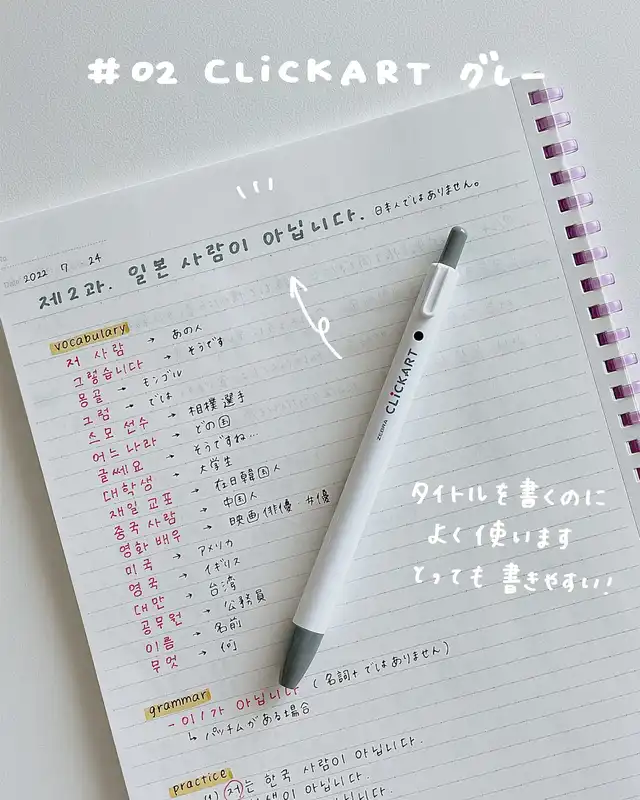 #02 CLiCKART グレー
Date 2022 7 24
제2과. 일본 사람이 아닙니다. 日本人ではありません。
vocabulary
저 사람 → あの人
그렇습니다 → そうです
몽골 → モンゴル
그럼 → では
스모 선수 → 相撲選手
어느 나라 → どの国
글쎄요 → そうですね…
대학생 → 大学生
재일 교포 → 在日韓国人
중국 사람 → 中国人
영화 배우 → 映画俳優
미국 → アメリカ
영국 → イギリス
대만 → 台湾
공무원 → 公務員
이름 → 名前
무엇 → 何
ZEBRA CLiCKART
タイトルを書くのに
よく使います
とっても書きやすい!
grammar
- 이/가 아닙니다 (名詞+ではありません)
↳ パッチムがある場合
practice
(1) 저는 한국 사람이 아닙니다.
이 아닙니다.
니다.